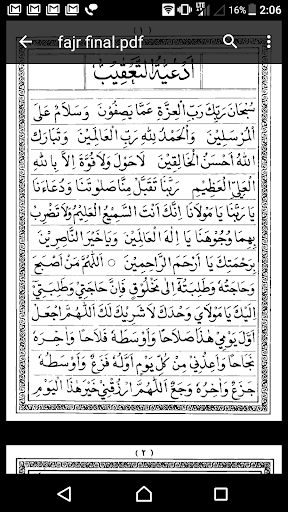 16% 2:06
fajr final.pdf
(١)
اَدْعِيَةُ التَّعْقِيْبِ
سُبْحَانَ رَبِّكَ رَبِّ الْعِزَّةِ عَمَّا يَصِفُوْنَ وَسَلَامٌ عَلَى
الْمُرْسَلِيْنَ وَالْحَمْدُ لِلّٰهِ رَبِّ الْعَالَمِيْنَ وَتَبَارَكَ
اللهُ اَحْسَنُ الْخَالِقِيْنَ لَاحَوْلَ وَلَا قُوَّةَ اِلَّا بِاللهِ
الْعَلِيِّ الْعَظِيْمِ رَبَّنَا تَقَبَّلْ مِنَّا صَلٰوتَنَا وَدُعَاءَنَا
يَا رَبَّنَا يَا مَوْلَانَا اِنَّكَ اَنْتَ السَّمِيْعُ الْعَلِيْمُ وَلَا تَضْرِبْ
بِهِمَا وُجُوْهَنَا يَا اِلٰهَ الْعَالَمِيْنَ وَيَاخَيْرَ النَّاصِرِيْنَ
بِرَحْمَتِكَ يَا اَرْحَمَ الرَّاحِمِيْنَ اَللّٰهُمَّ مَنْ اَصْبَحَ
وَحَاجَتُهُ وَطَلِبَتُهُ اِلٰى مَخْلُوْقٍ فَاِنَّ حَاجَتِيْ وَطَلِبَتِيْ
اِلَيْكَ يَا مَوْلَايَ وَحْدَكَ لَا شَرِيْكَ لَكَ اَللّٰهُمَّ اجْعَلْ
اَوَّلَ يَوْمِيْ هٰذَا صَلَاحًا وَاَوْسَطَهُ فَلَاحًا وَاٰخِرَهُ
نَجَاحًا وَاَعِذْنِيْ مِنْ كُلِّ يَوْمٍ اَوَّلُهُ فَزَعٌ وَاَوْسَطُهُ
جَزَعٌ وَاٰخِرُهُ وَجَعٌ اَللّٰهُمَّ ارْزُقْنِيْ خَيْرَ هٰذَا الْيَوْمِ
(٢)